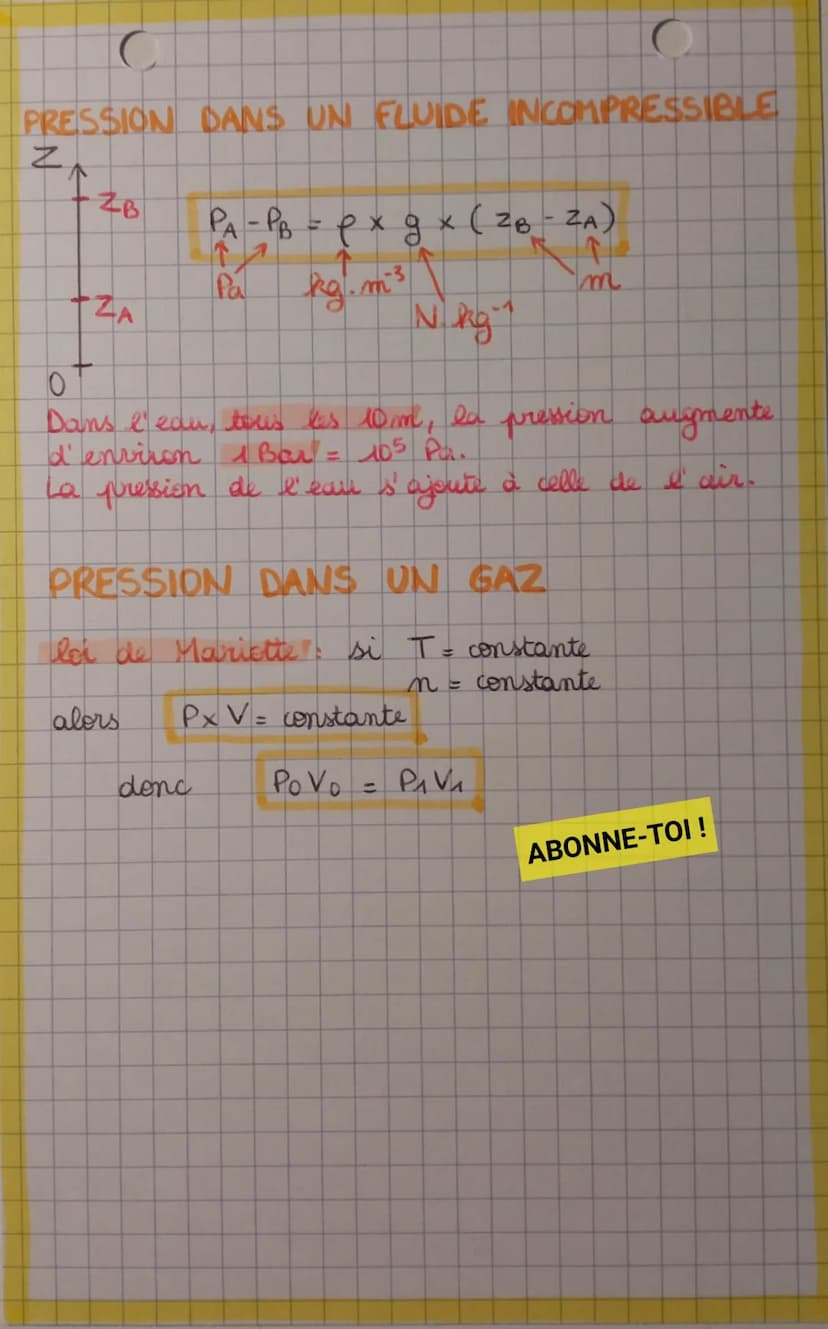 PRESSION DANS UN FLUIDE INCOMPRESSIBLE
Z
ZB
PA - PB = ρ x g x ( ZB - ZA )
Pa
kg.m⁻³
m
ZA
N.kg⁻¹
O
Dans l'eau, tous les 10m, la pression augmente
d'environ 1 Bar = 10⁵ Pa.
La pression de l'eau s'ajoute à celle de l'air.
PRESSION DANS UN GAZ
loi de Mariotte : si T = constante
n = constante
alors P x V = constante
donc P0V0 = P1V1
ABONNE-TOI !